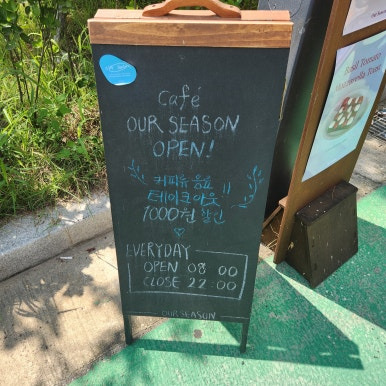 Café
OUR SEASON
OPEN!
커피류 음료
테이크아웃
1000원 할인
EVERYDAY
OPEN 08:00
CLOSE 22:00
OUR SEASON
Basil Tomato
Mozzarella Toast